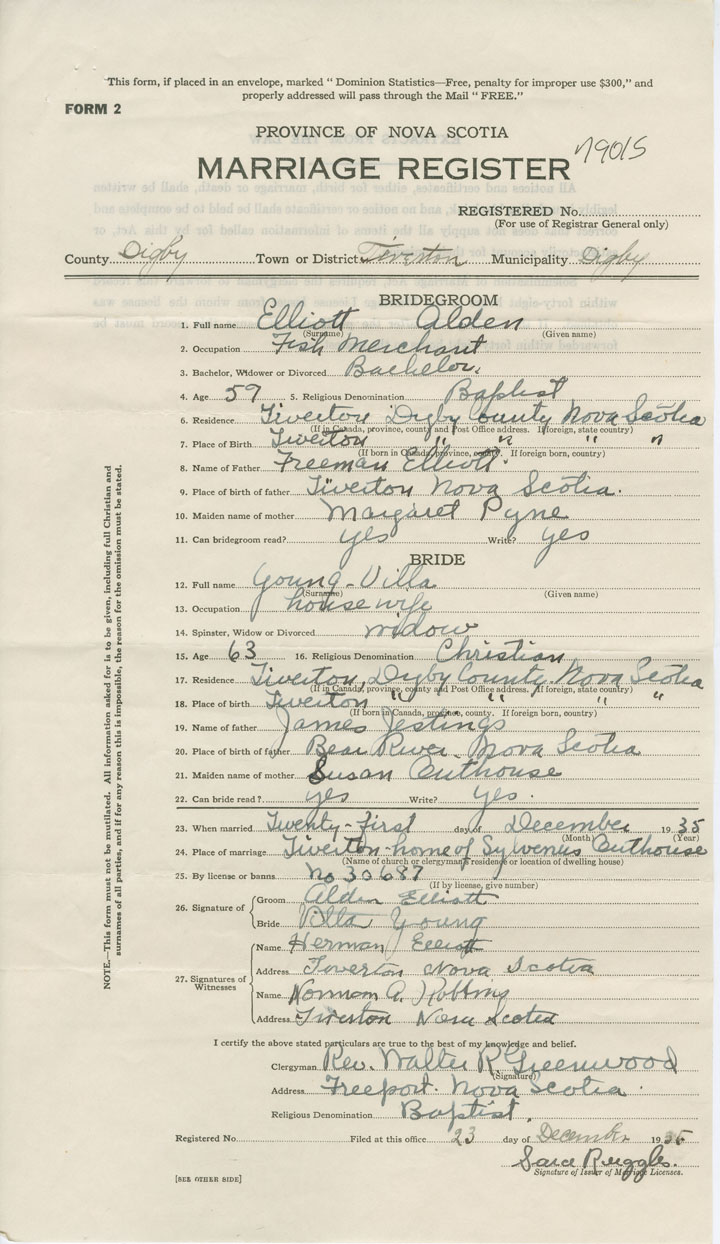 This form, if placed in an envelope, marked “ Dominion Statistics—Free, penalty for improper use $300,” and
properly addressed will pass through the Mail “ FREE.”
FORM 2
PROVINCE OF NOVA SCOTIA
MARRIAGE REGISTER 79015
REGISTERED No.
(For use of Registrar General only)
County Digby Town or District Tiverton Municipality Digby
BRIDEGROOM
1. Full name Elliott Alden
(Surname) (Given name)
2. Occupation Fish Merchant
3. Bachelor, Widower or Divorced Bachelor.
4. Age 59 5. Religious Denomination Baptist
6. Residence Tiverton Digby County Nova Scotia
(If in Canada, province, county and Post Office address. If foreign, state country)
7. Place of Birth Tiverton " " " "
(If born in Canada, province, county. If foreign born, country)
8. Name of Father Freeman Elliott.
9. Place of birth of father Tiverton Nova Scotia.
10. Maiden name of mother Margaret Pyne
11. Can bridegroom read? yes Write? yes
BRIDE
12. Full name Young - Villa
(Surname) (Given name)
13. Occupation housewife
14. Spinster, Widow or Divorced widow
15. Age 63 16. Religious Denomination Christian
17. Residence Tiverton, Digby County. Nova Scotia
(If in Canada, province, county and Post Office address. If foreign, state country)
18. Place of birth Tiverton " " " "
(If born in Canada, province, county. If foreign born, country)
19. Name of father James Jestings
20. Place of birth of father Bear River. Nova Scotia
21. Maiden name of mother Susan Outhouse
22. Can bride read? yes Write? yes.
23. When married Twenty-first day of December 1935
(Month) (Year)
24. Place of marriage Tiverton-home of Sylvenus Outhouse
(Name of church or clergyman's residence or location of dwelling house)
25. By license or banns No 30687
(If by license, give number)
26. Signature of Groom Alden Elliott
Bride Villa Young
27. Signatures of Witnesses Name Herman Elliott
Address Tiverton Nova Scotia
Name Norman A. Robbins
Address Tiverton Nova Scotia
I certify the above stated particulars are true to the best of my knowledge and belief.
Clergyman Rev. Walter R. Greenwood
(Signature)
Address Freeport. Nova Scotia.
Religious Denomination Baptist.
Registered No. Filed at this office 23 day of December 1935
Sara Ruggles.
Signature of Issuer of Marriage Licenses.
[SEE OTHER SIDE]
NOTE.—This form must not be mutilated. All information asked for is to be given, including full Christian and
surnames of all parties, and if for any reason this is impossible, the reason for the omission must be stated.